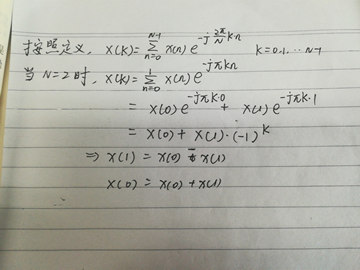 按照定义, X(k) = \sum_{n=0}^{N-1} x(n) e^{-j\frac{2π}{N}kn} k=0,1,...N-1
当 N=2 时, X(k) = \sum_{n=0}^{1} x(n) e^{-jπkn}
= x(0) e^{-jπk·0} + x(1) e^{-jπk·1}
= x(0) + x(1)·(-1)^k
⇒ X(1) = x(0) - x(1)
X(0) = x(0) + x(1)